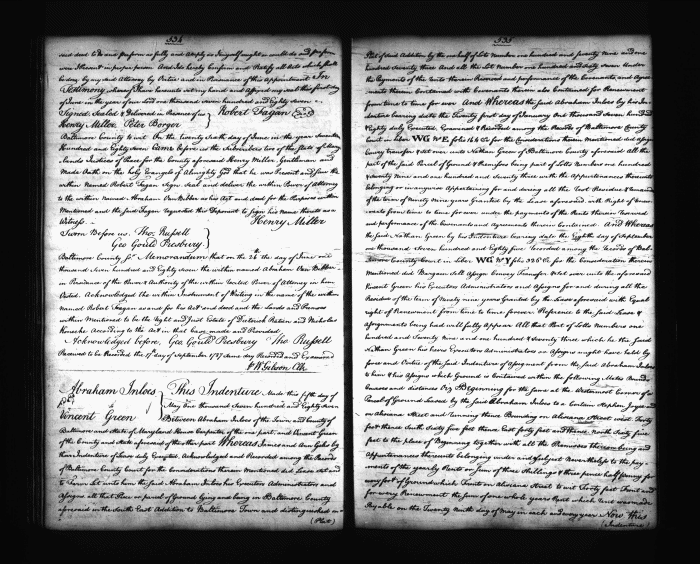 534
said deed to be done perform as fully and amply as I myself might or could do and perform
were I present in proper person And I do hereby confirm and Ratify all acts which shall
be done by my said Attorney by Virtue and in Pursuance of this Appointment In
Testimony whereof I have hereunto set my hand and affixed my seal this first day
of June in the year of our Lord one thousand seven hundred and Eighty seven
Signed Sealed & Delivered in Presence of us Robert Fagan
Henry Miller Peter Berger
Baltimore County to wit On the Twenty Sixth day of June in the year Seventeen
Hundred and Eighty seven Came before us the Subscribers two of the State of Mary
lands Justices of Peace for the County aforesaid Henry Miller Gentleman and
Made Oath on the holy Evangels of Almighty God that he was Present and saw the
within Named Robert Fagan Sign Seal and deliver the within Power of Attorney
to the within Named Abraham Van Bibber as his Act and Deed for the Purposes within
Mentioned and the said Fagan requested this Deponent to sign his name thereto as a
Witness Henry Miller
Sworn Before us Tho: Russell
Geo Gould Presbury
Baltimore County Memorandum that on the 26th day of June one
thousand Seven hundred and Eighty seven the within named Abraham Van Bibber
in Pursuance of the Power & Authority of the within Letter Power of Attorney in him
Acknowledged the within Instrument of Writing in the name of the within
named Robert Fagan as and for his Act and deed and the Lands and Premises
within Mentioned to be the right and Just Estate of Dieterick
According to the Act in that case made and Provided
Acknowledged before Geo Gould Presbury Tho Russell
Received to be Recorded the 17 day of September 1787 same day Recorded and Examined
Wm Gibson Clk
Abraham Inloes
to
Vincent Green
This Indenture Made this fifth day of
May One thousand Seven hundred and Eighty Seven
Between Abraham Inloes of the Town and County of
Baltimore and State of Maryland House Carpenter of the one part, and Vincent Green
of the County and State aforesaid of the other part Whereas James and Ann
by their Indenture of Lease duly Executed Acknowledged and Recorded among the Records
of Baltimore County Court for the Considerations therein Mentioned did Lease set and
to Farm Let unto him the said Abraham Inloes his Executors Administrators and
Assigns all that Piece or parcel of Ground lying and being in Baltimore County
aforesaid in the South East Addition to Baltimore Town and distinguished on
(Plat)
535
Plat of said Addition by the one half of Lots number one hundred and seventy nine and one
hundred seventy three And all the Lot Number one hundred and sixty seven Under
the Payments of the rents therein Reserved and performance of the Covenants and Agree
ments therein Contained with Covenants therein also Contained for Renewment
from time to time for ever And Whereas the said Abraham Inloes by his In
denture bearing date the Twenty first day of January One thousand Seven hundred
& Eighty duly Executed Examined & Recorded among the Records of Baltimore County
Court in Liber WG No E folio 164 &c for the Considerations therein Mentioned did assign
convey transfer & set over unto Nathan Green of Baltimore County aforesaid all the
part of the said Parcel of Ground & Premises being part of Lots Number one hundred
& seventy nine and one hundred and seventy three with the Appurtenances thereunto
belonging or in anywise Appertaining for and during all the rest Residue & remainder
of the term of Ninety nine years Granted by the Lease aforesaid with Right of Renew
ment from time to time for ever under the payments of the Rents therein Reserved
and performance of the Covenants and Agreements therein Contained And Whereas
the said Nathan Green by his Indenture bearing date the Eighth day of September
one thousand Seven hundred and Eighty five recorded among the Records of Bal
timore County Court in Liber WG No Y folio 326 &c for the Consideration therein
Mentioned did Bargain sell Assign Convey Transfer & set over unto the aforesaid
Vincent Green his Executors Administrators and Assigns for and during all the
Residue of the term of Ninety nine years granted by the Lease aforesaid with Equal
right of Renewment from time to time forever Reference to the said Leases &
Assignments being had will fully Appear All that Part of Lots Numbers one
hundred and Seventy nine and one hundred & Seventy three which he the said
Nathan Green his heirs Executors Administrators or Assigns might have held by
force and Virtue of the said Indenture of Assignment from the said Abraham Inloes
to him & his Assigns which Ground is Contained within the following Metes Bounds
Courses and distances Viz Beginning for the same at the Westernmost Corner of a
Parcel of Ground Leased by the said Abraham Inloes to a Certain Stephen
on Alisanna Street and running thence Bounding on Alisanna Street west Forty
feet thence South Sixty five feet thence East forty feet and thence North Sixty five
feet to the place of Beginning together with all the Premises thereon being and
Appurtenances thereunto belonging under and Subject Nevertheless to the pay
ments of the yearly Rents or Sum of three Shillings & three pence half penny for
every foot of Ground which Fronts on Alisanna Street to wit Forty feet Front and
for every Renewment the sum of one whole years Rent which rent was made
Payable on the Twenty Ninth day of May in each and every year Now this
(Indenture)